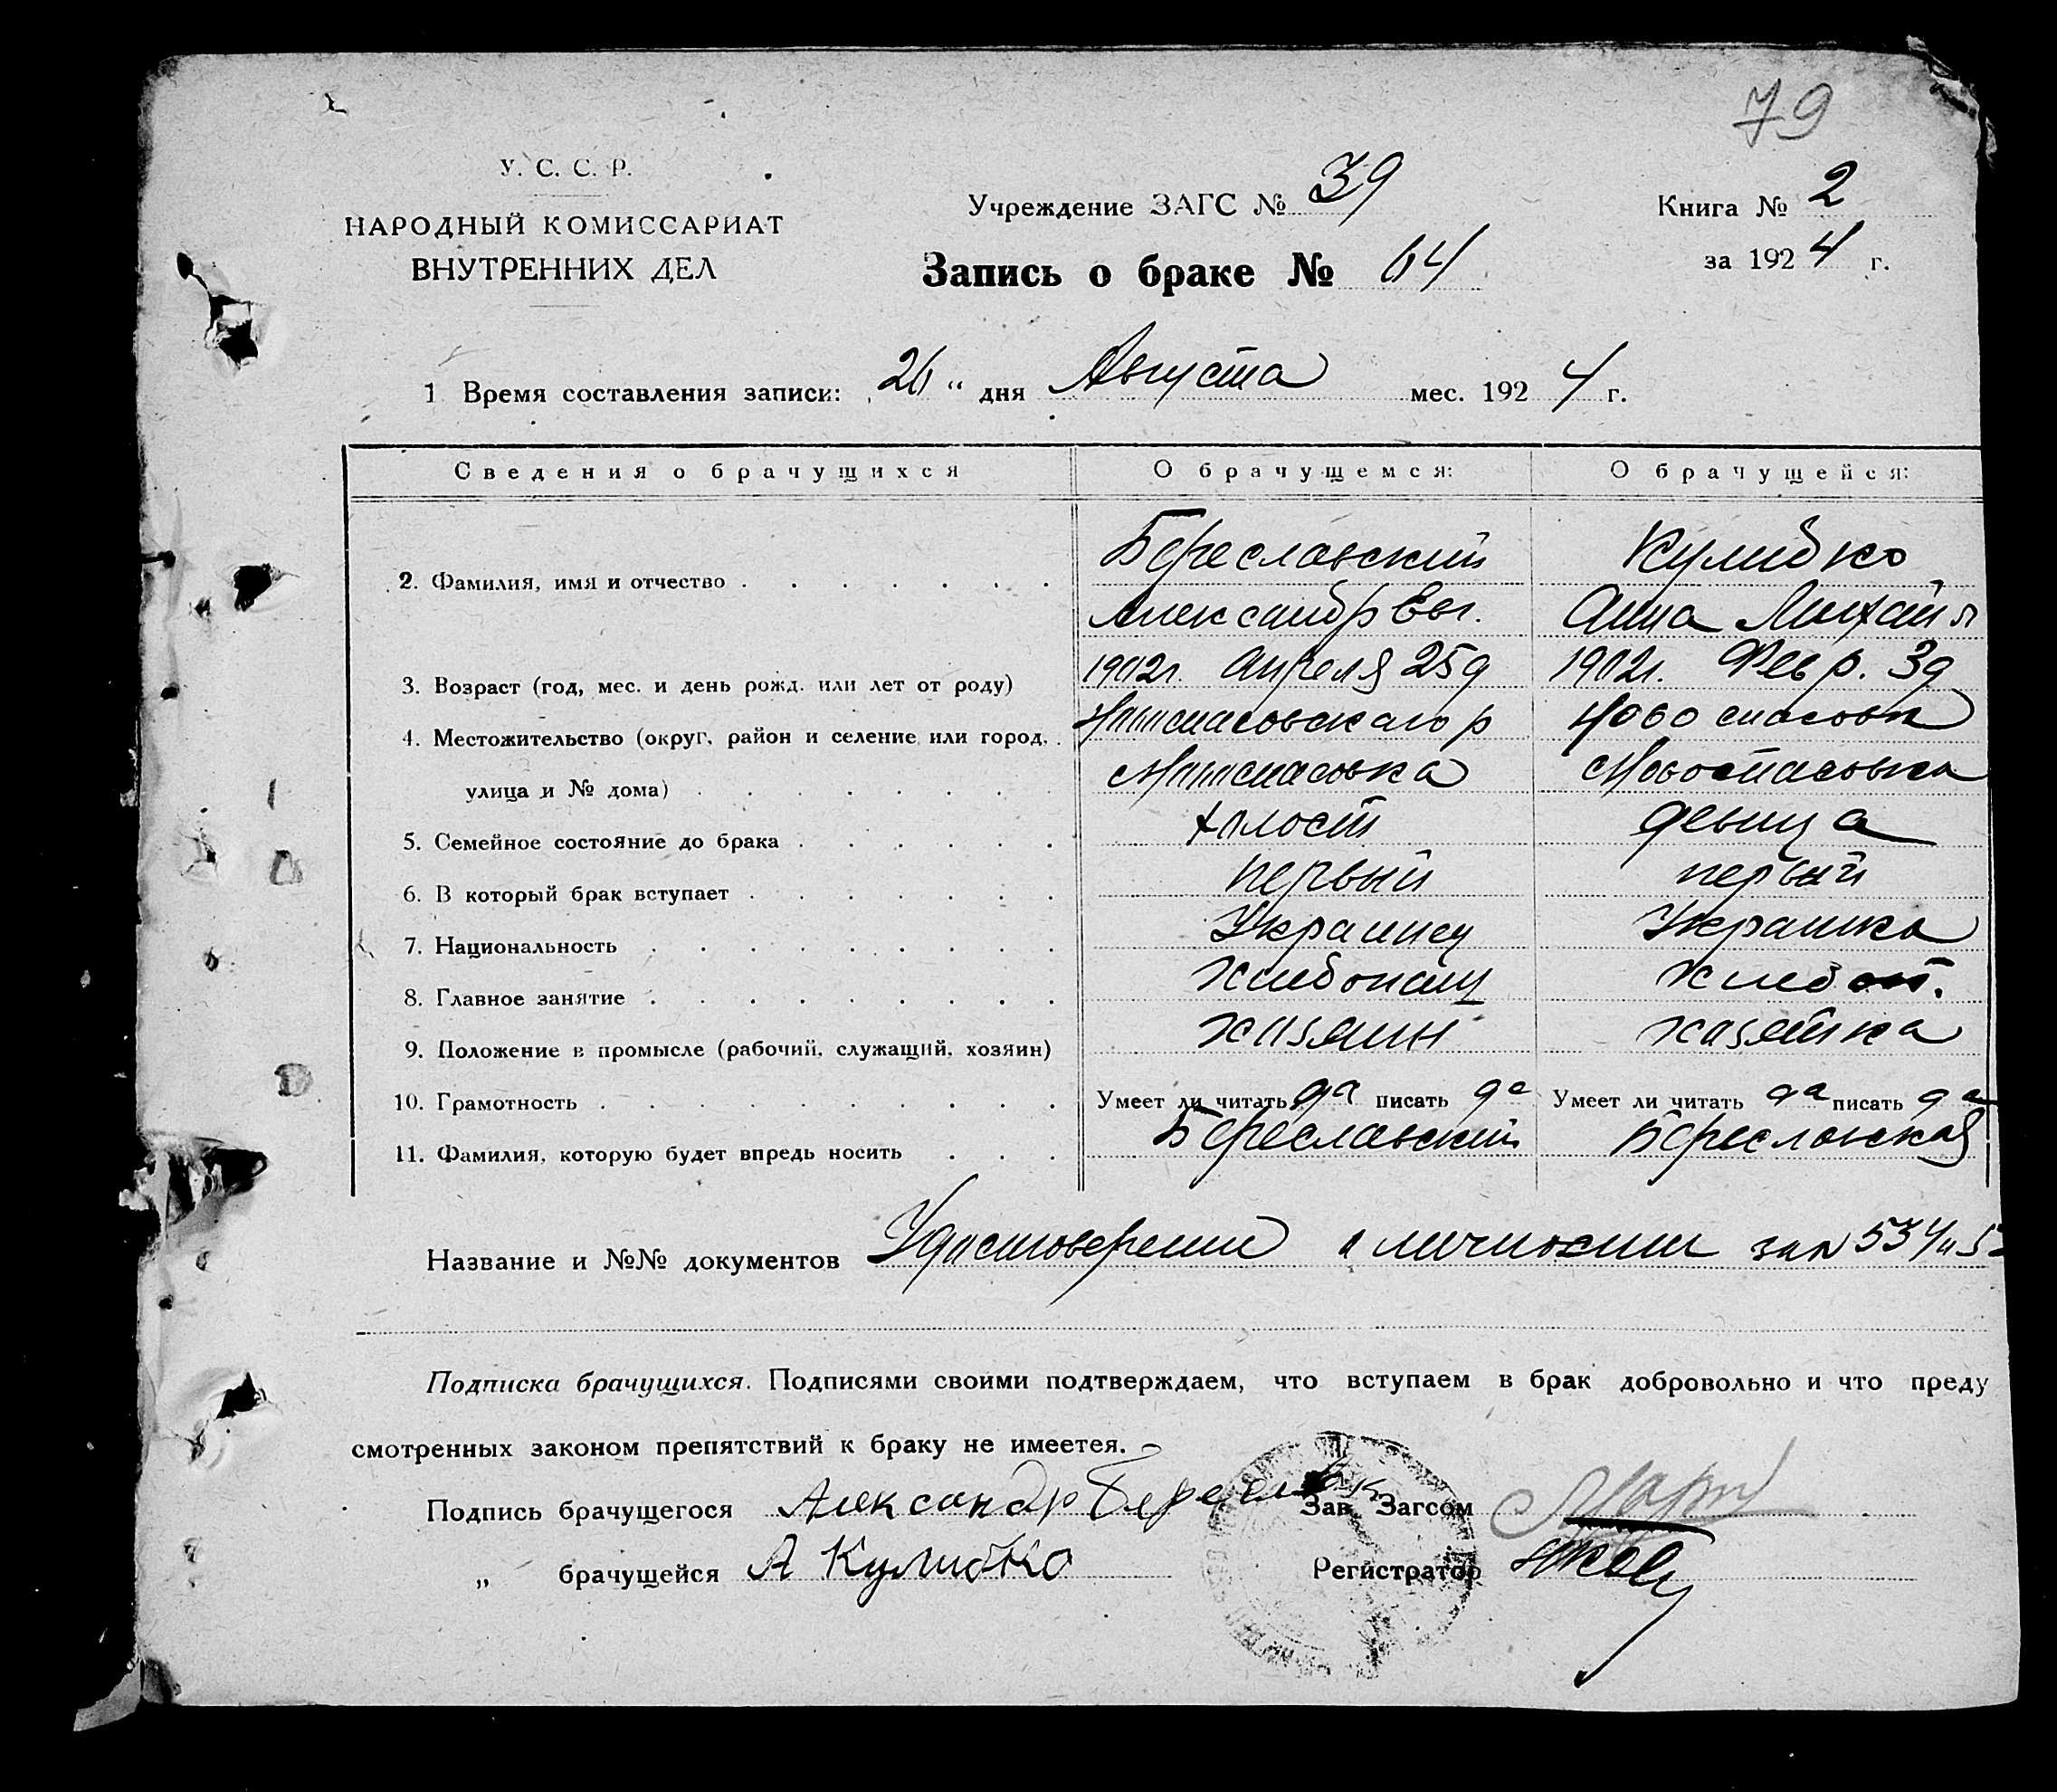 79
У. С. С. Р.
НАРОДНЫЙ КОМИССАРИАТ
ВНУТРЕННИХ ДЕЛ
Учреждение ЗАГС № 39
Книга № 2
Запись о браке № 64
за 1924 г.
1 Время составления записи: 26 " дня Августа мес. 1924 г.
Сведения о брачущихся О брачущемся: О брачущейся:
2. Фамилия, имя и отчество Береславский Кулибко
Александр Евг. Анна Михайл
3. Возраст (год, мес. и день рожд. или лет от роду) 1902г. Апреля 25д 1902г. Февр. 3д
4. Местожительство (округ, район и селение или город, Новоспасовскаго р Новоспасовск
улица и № дома) Новоспасовка Новоспасовка
5. Семейное состояние до брака холост девица
6. В который брак вступает первый первый
7. Национальность Украинец Украинка
8. Главное занятие Хлебопашц Хлебоп.
9. Положение в промысле (рабочий, служащий, хозяин) хозяин хозяйка
10. Грамотность Умеет ли читать да писать да Умеет ли читать да писать да
11. Фамилия, которую будет впредь носить Береславский Береславская
Название и №№ документов Удостоверении о личности за № 534 и 5
Подписка брачущихся. Подписями своими подтверждаем, что вступаем в брак добровольно и что преду
смотренных законом препятствий к браку не имеется.
Подпись брачущегося Александр Береславск Зав. Загсом
„ брачущейся А Кулибко Регистратор